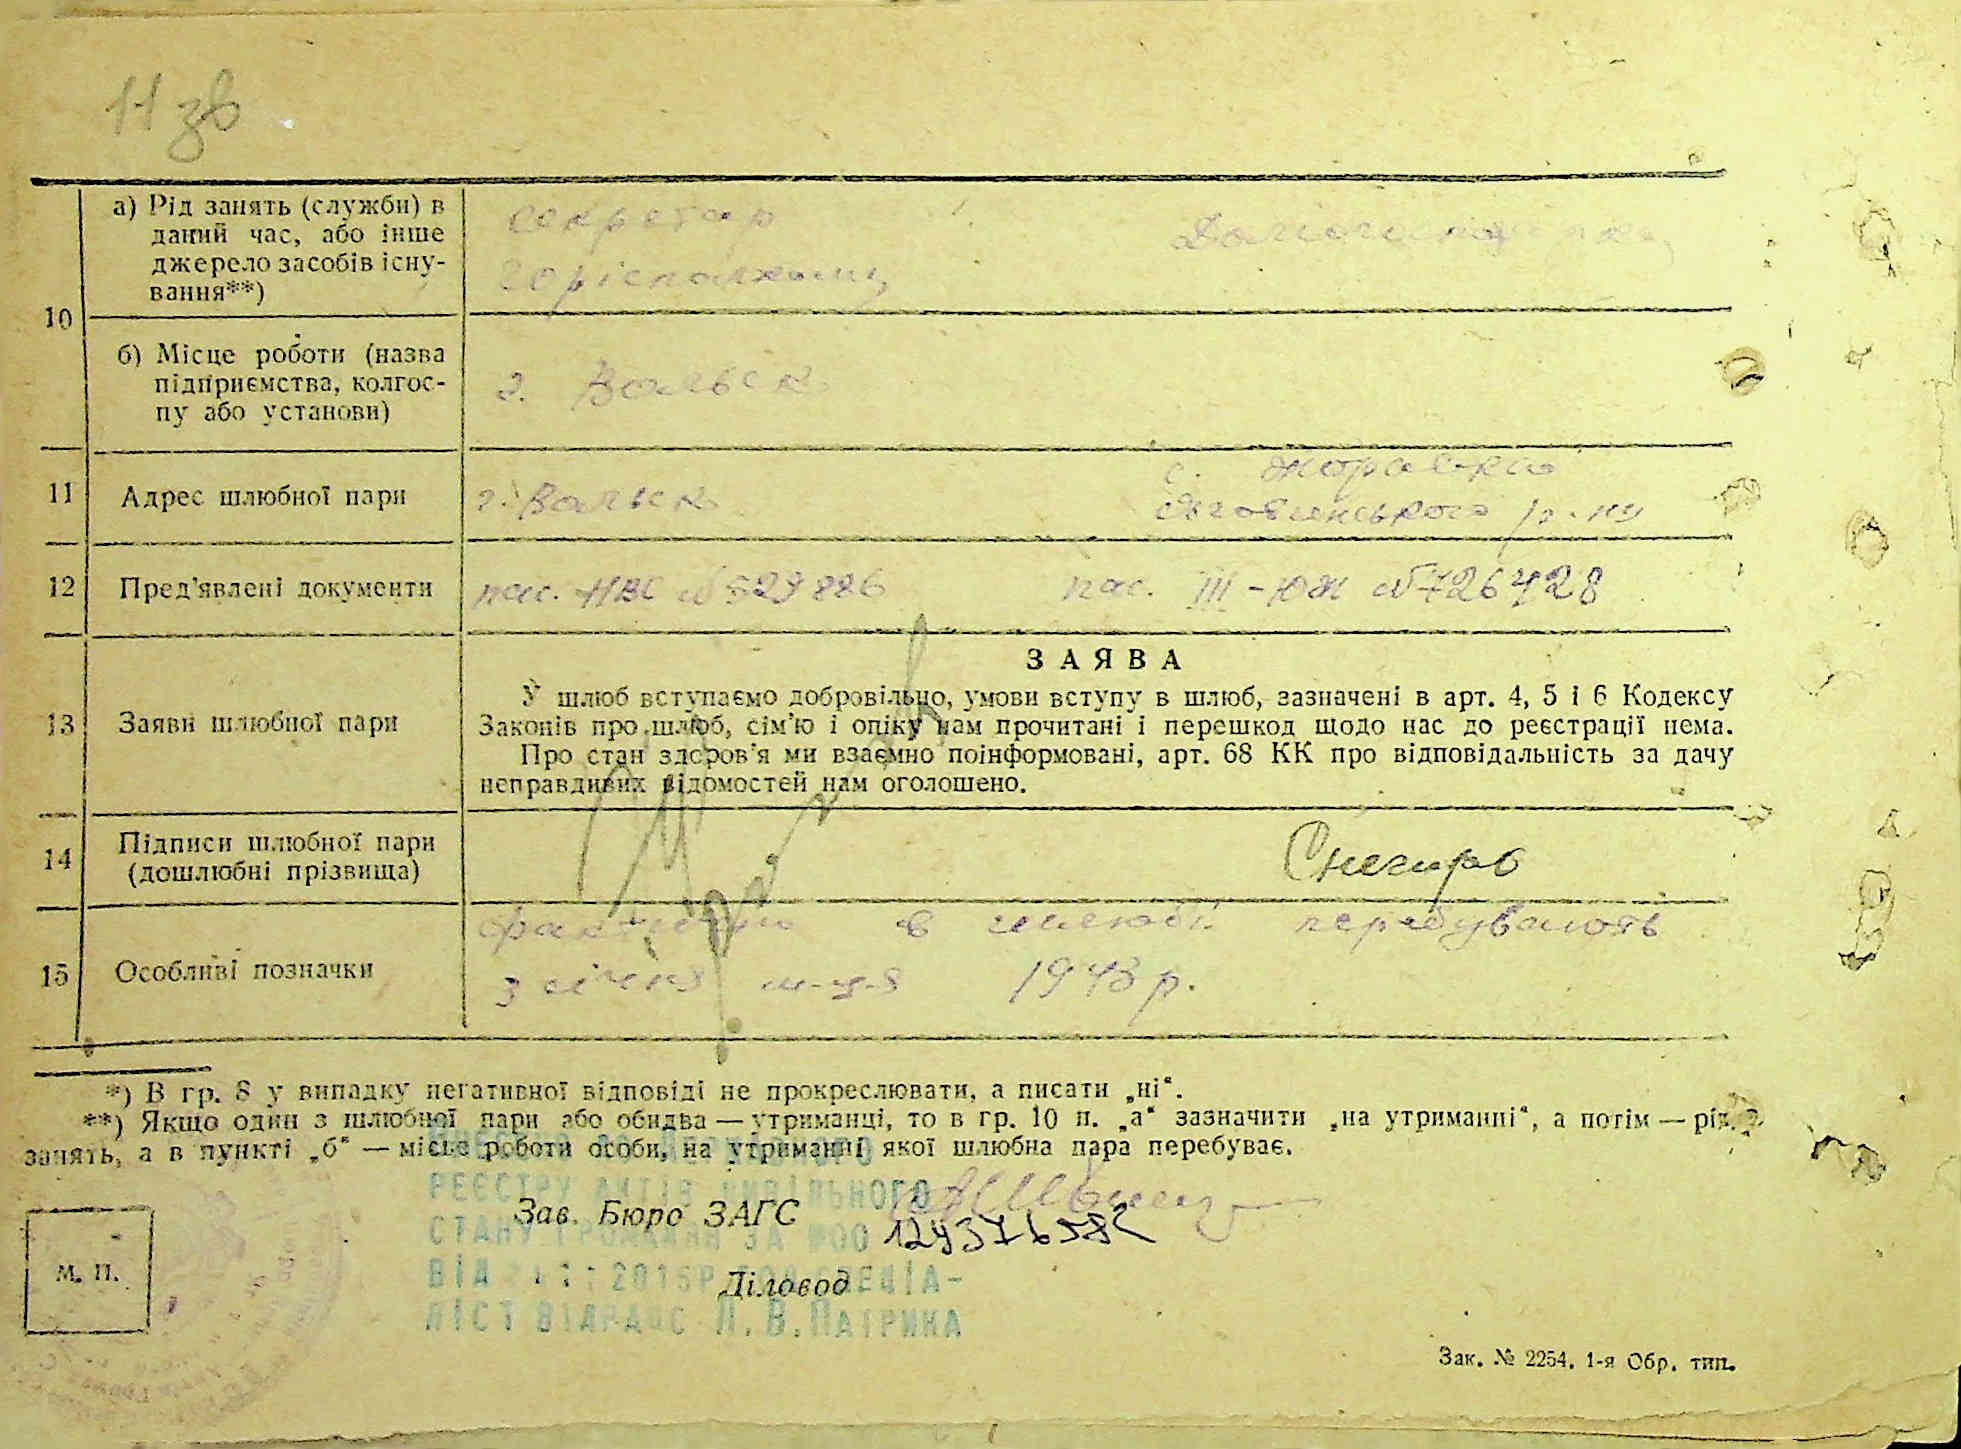 11 зв
10
а) Рід занять (служби) в
даний час, або інше
джерело засобів існу-
вання**)
секретар
горісполкому
б) Місце роботи (назва
підприємства, колгос-
пу або установи)
г. Вольськ
11
Адрес шлюбної пари
г. Вольськ
с.
р-ну
12
Пред'явлені документи
пас. НВС № 529886
пас. III-ЮЖ № 726428
13
Заяви шлюбної пари
ЗАЯВА
У шлюб вступаємо добровільно, умови вступу в шлюб, зазначені в арт. 4, 5 і 6 Кодексу
Законів про шлюб, сім'ю і опіку нам прочитані і перешкод щодо нас до реєстрації нема.
Про стан здоров'я ми взаємно поінформовані, арт. 68 КК про відповідальність за дачу
неправдивих відомостей нам оголошено.
14
Підписи шлюбної пари
(дошлюбні прізвища)
Снегирь
15
Особливі позначки
фактично в шлюбі перебувають
з січня м-ця 1943 р.
*) В гр. 8 у випадку негативної відповіді не прокреслювати, а писати „ні“.
**) Якщо один з шлюбної пари або обидва — утриманці, то в гр. 10 п. „а“ зазначити „на утриманні“, а потім — рід
занять, а в пункті „б“ — місце роботи особи, на утриманні якої шлюбна пара перебуває.
РЕЄСТРУ АКТІВ ЦИВІЛЬНОГО
Зав. Бюро ЗАГС
СТАНУ ГРОМАДЯН ЗА №00 124376582
М. П.
ВІД 2015Р. СПЕЦІА-
Діловод
ЛІСТ ВІДРАЦС Л. В. ПАТРИКА
Зак. № 2254. 1-я Обр. тип.